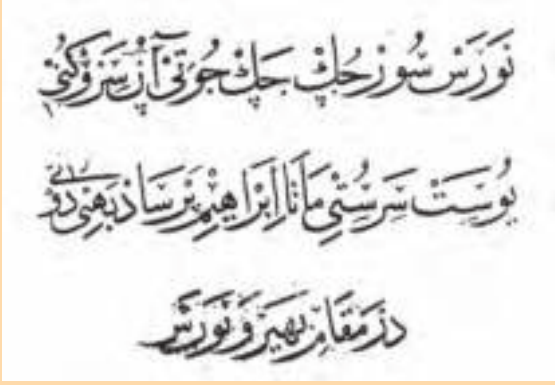 نَوَرَسْ سُورْ جُكْ جَكْ جُوتِيْ آنْ سَرْوَكُنِيْ
يُوسَتْ سَرَسُتِيْ مَاتَا اِبْرَاهِيْمْ پَرَسَادْ بَهَئِيْ دُونِيْ
دَرْ مَقَامِ بَهِيرَوْ نَوْرَسْ